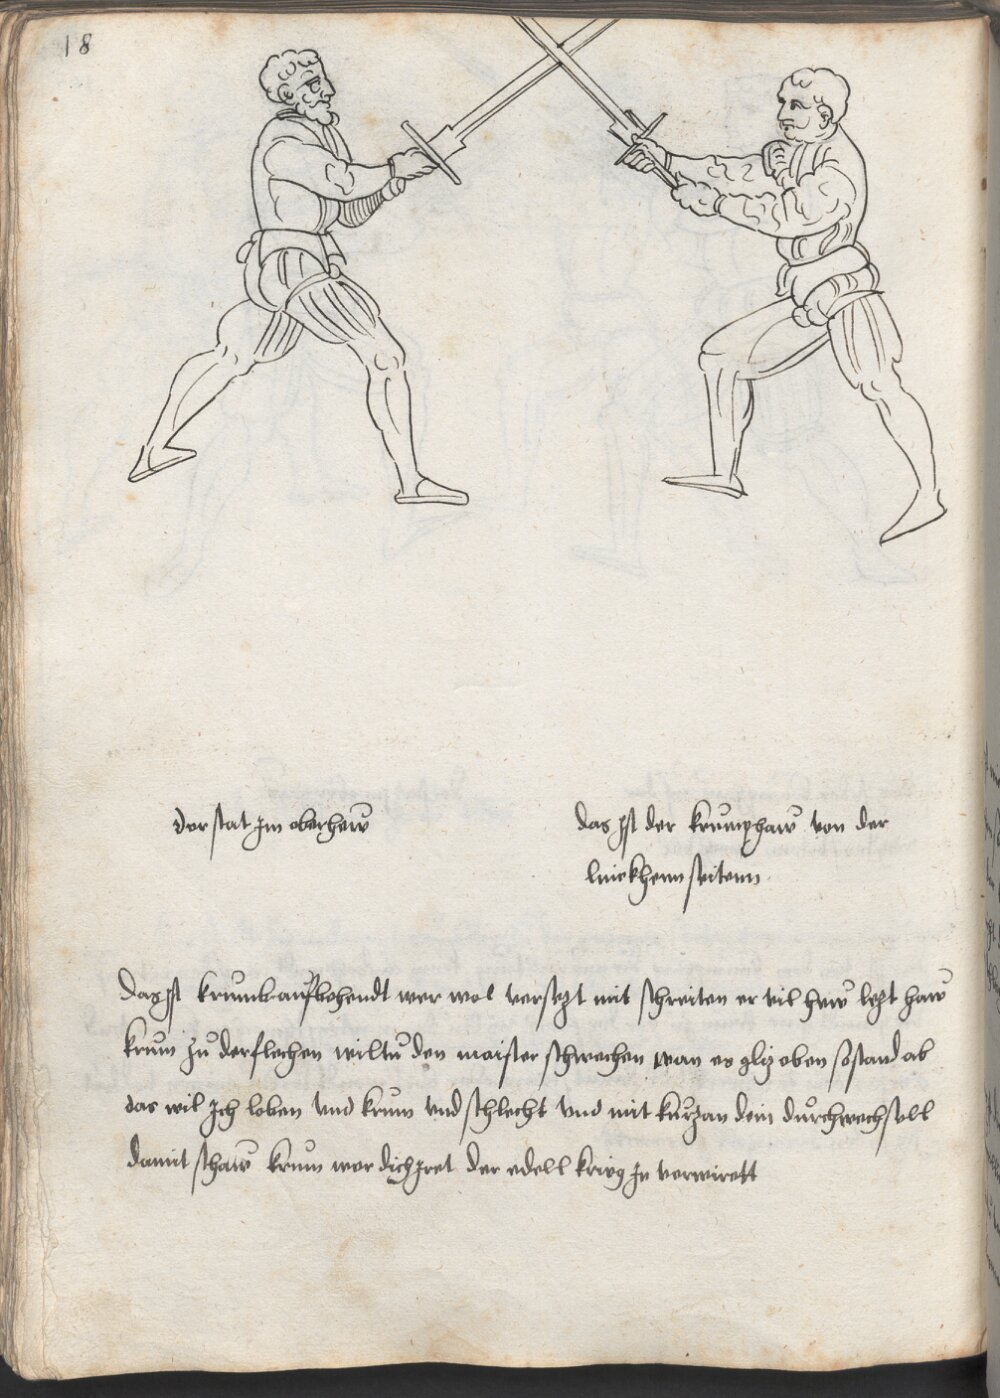 18
der stat Im oberhaw
das Ist der krumphaw von der
linckhenn seitenn
Das Ist krumb auf behendt wer wol versetzt mit schreiten er vil hew letzt haw
krum zu der flechen wiltu den maister schwechen wan es glitz oben so stand ab
das wil Ich loben vnd krum vnd schlecht vnd mit kurtz an dein durchwechsell
damit schaw krum wer dich Iret der edell krieg In verwirett